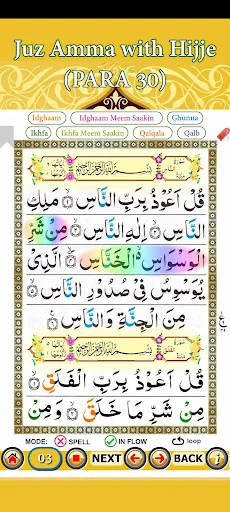 Juz Amma with Hijje
(PARA 30)
Idghaam
Idghaam Meem Saakin
Ghunna
Ikhfa
Ikhfa Meem Saakin
Qalqala
Qalb
بِسْمِ اللهِ الرَّحْمٰنِ الرَّحِيْمِ
قُلْ اَعُوْذُ بِرَبِّ النَّاسِ ۙ﴿۱﴾ مَلِكِ
النَّاسِ ۙ﴿۲﴾ اِلٰهِ النَّاسِ ۙ﴿۳﴾ مِنْ شَرِّ
الْوَسْوَاسِ ۙ۬ الْخَنَّاسِ ۙ﴿۴﴾ الَّذِیْ
یُوَسْوِسُ فِیْ صُدُوْرِ النَّاسِ ۙ﴿۵﴾
مِنَ الْجِنَّةِ وَ النَّاسِ ﴿۶﴾
بِسْمِ اللهِ الرَّحْمٰنِ الرَّحِيْمِ
قُلْ اَعُوْذُ بِرَبِّ الْفَلَقِ ۙ﴿۱﴾
مِنْ شَرِّ مَا خَلَقَ ۙ﴿۲﴾ وَ مِنْ
MODE:
SPELL
IN FLOW
loop
03
NEXT
BACK
i